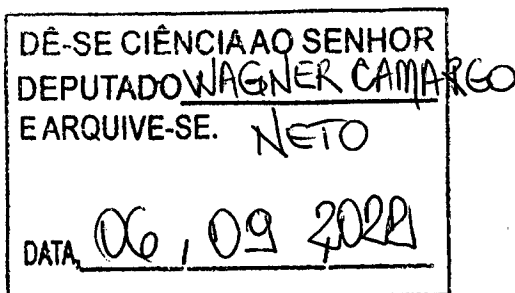 DÊ-SE CIÊNCIA AO SENHOR
DEPUTADO WAGNER CAMARGO
E ARQUIVE-SE. NETO
DATA, 06, 09 2022